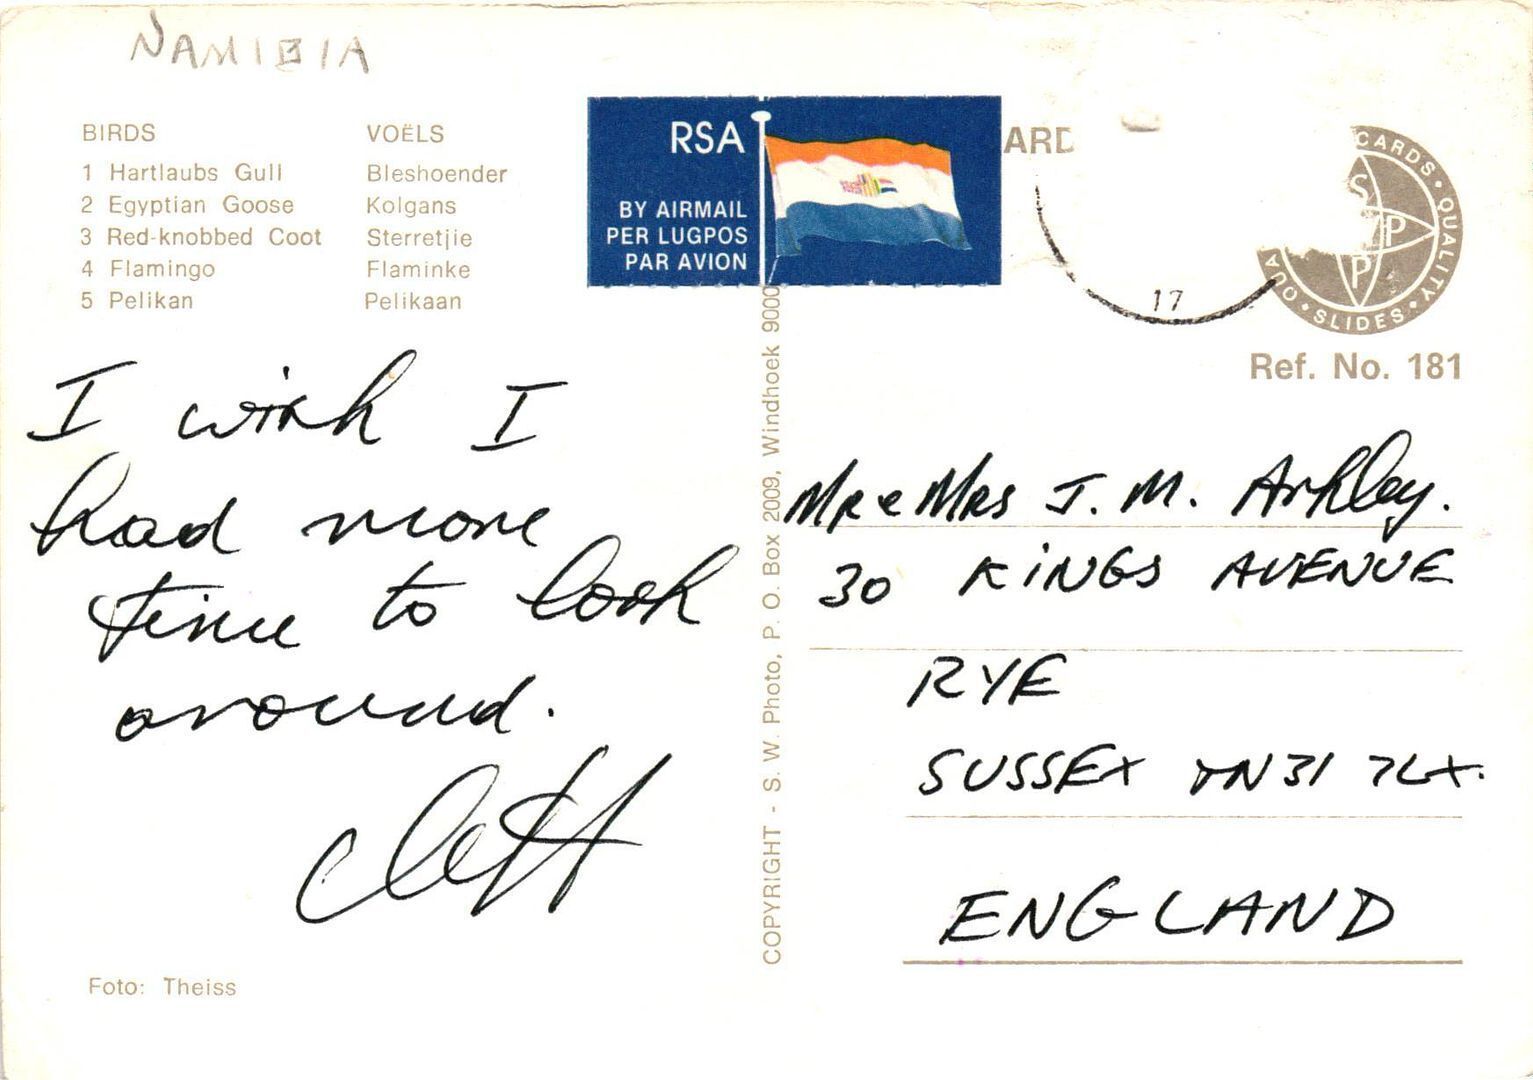 NAMIBIA
BIRDS VOËLS
1 Hartlaubs Gull Bleshoender
2 Egyptian Goose Kolgans
3 Red-knobbed Coot Sterretjie
4 Flamingo Flaminke
5 Pelikan Pelikaan
RSA
BY AIRMAIL
PER LUGPOS
PAR AVION
ARD
17
CARDS · QUALITY · SLIDES · QUA
S P P
Ref. No. 181
I wish I
had more
time to look
around.
Cliff
Foto: Theiss
COPYRIGHT - S. W. Photo, P. O. Box 2009, Windhoek 9000
Mr & Mrs J. M. Arkley.
30 KINGS AVENUE
RYE
SUSSEX TN31 7LX.
ENGLAND